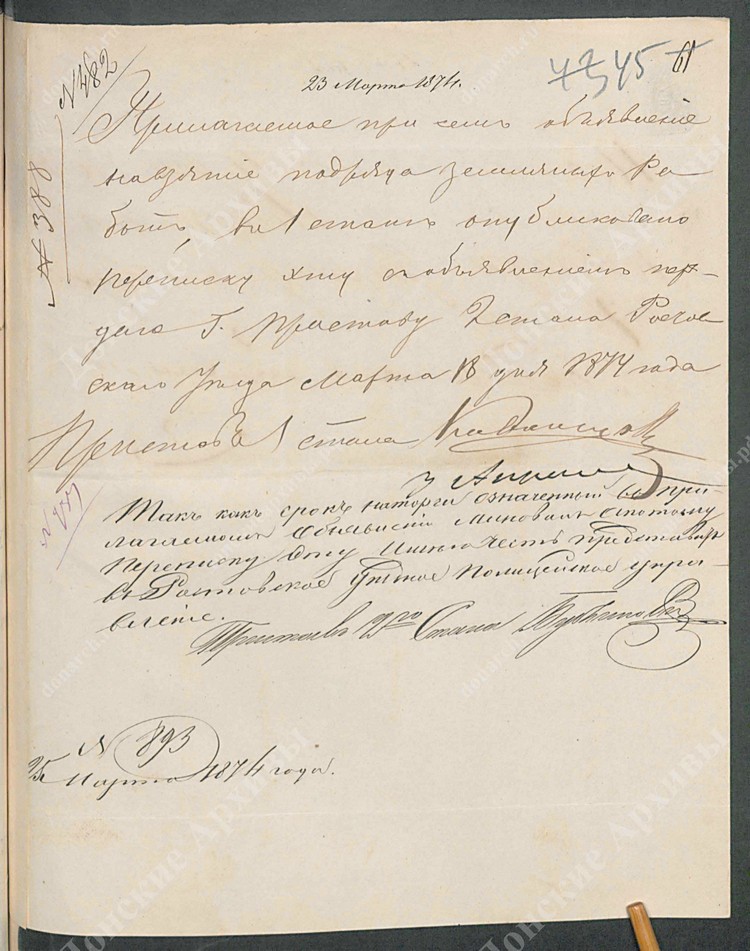 № 482
23 Марта 1874.
45
61
№ 388
Прилагаемое при семъ объявленіе
на взятіе подряда земляныхъ Ра
ботъ, въ 1 станѣ опубликовано
переписку эту съ объявленіемъ пер-
даю Г. Приставу 2 стана Росто
скаго Уезда Марта 18 дня 1874 года
Приставъ 1 стана
Такъ какъ срокъ на торги означенный въ при
лагаемомъ Объявленіи Миновалъ а потому
переписку эту Имѣю честь представить
въ Ростовское Уѣздное Полицейское упра
вленіе.
Приставъ 2го Стана
№ 893
25 Марта 1874 года.